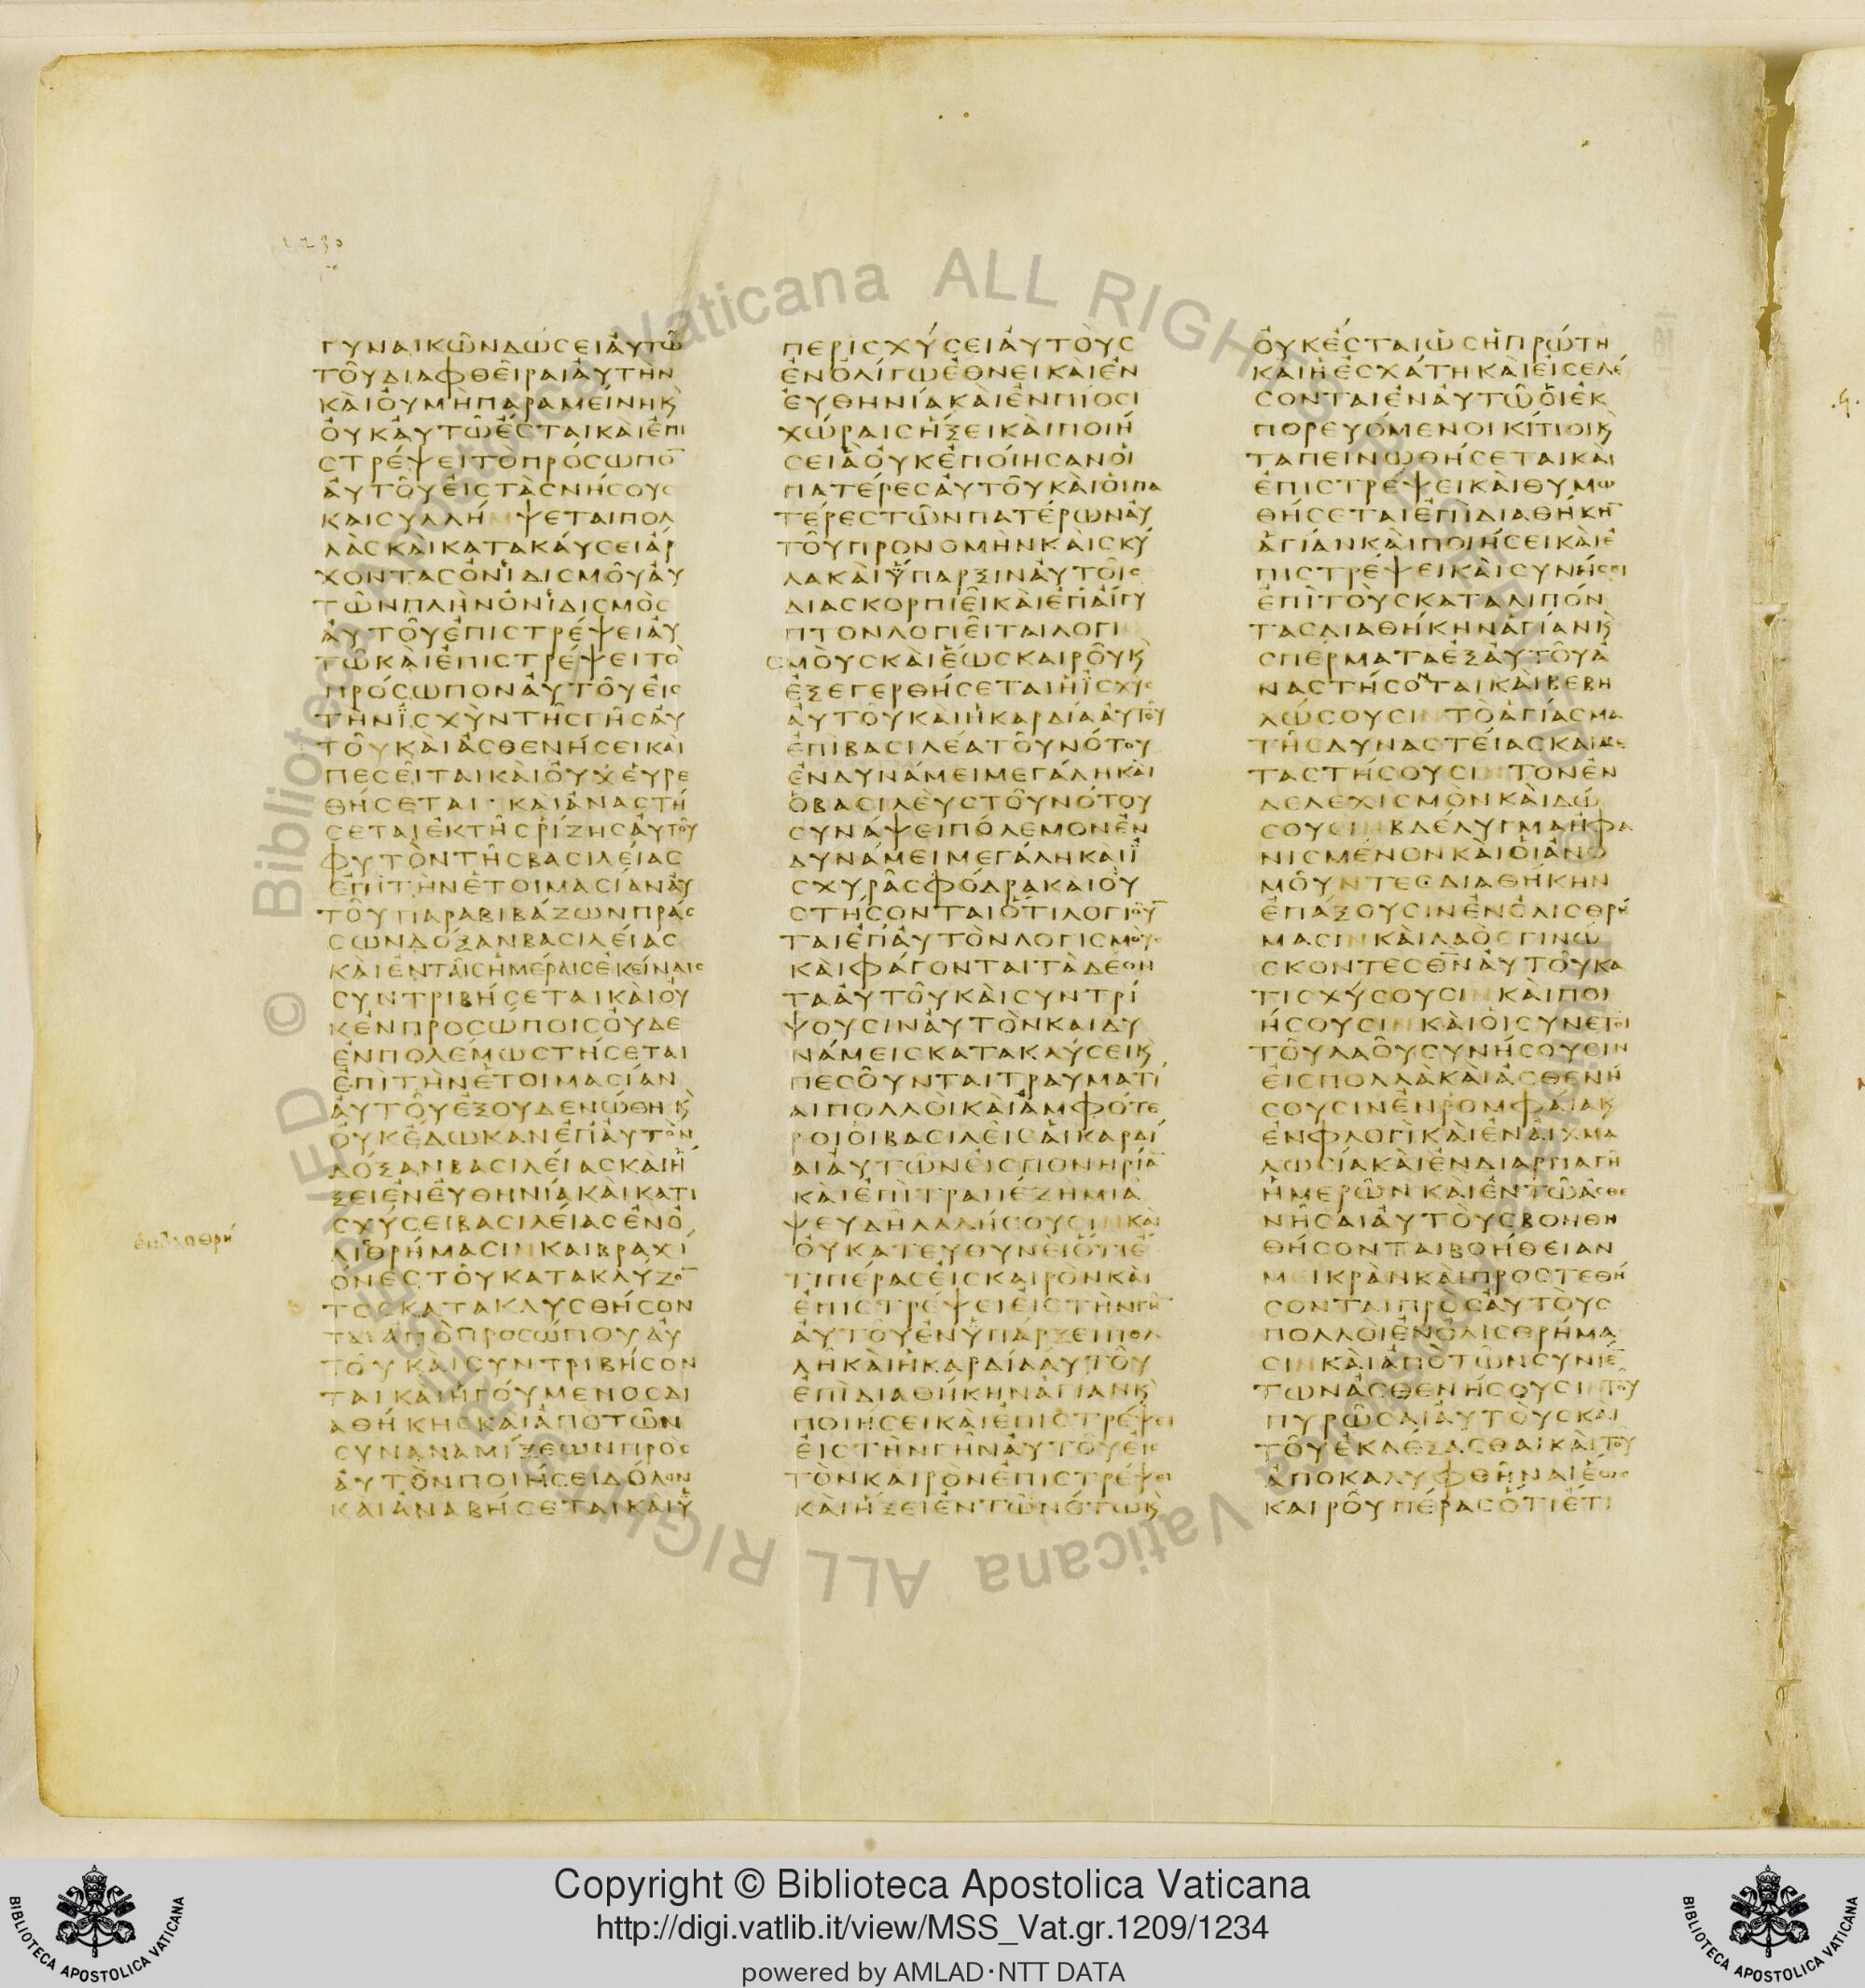 1230
ΓΥΝΑΙΚΩ͂ΝΔΏϹΕΙἈΥΤΩ͂
ΤΟΥ͂ΔΙΑΦΘΕΙ͂ΡΑΙἈΥΤῊΝ
ΚᾺΙΟΥ̓ΜῊΠΑΡΑΜΕΊΝΗΚ̀
ΟΥ̓ΚἈΥΤΩ͂ἜϹΤΑΙΚᾺΙἘΠΙ
ϹΤΡΈΨΕΙΤΟΠΡΌϹΩΠΟ̅
ἈΥΤΟΥ͂ΕἸϹΤᾺϹΝΉϹΟΥϹ
ΚΑΙϹΥΛΛΉΜΨΕΤΑΙΠΟΛ
ΛᾺϹΚᾺΙΚΑΤΑΚΆΥϹΕΙἌΡ
ΧΟΝΤΑϹὈΝΙΔΙϹΜΟΥ͂ΑΥ̓
ΤΩ͂ΝΠΛῊΝὈΝΙΔΙϹΜῸϹ
ἈΥΤΟΥ͂ἘΠΙϹΤΡΈΨΕΙΑΥ̓
ΤΩ͂ΚᾺΙἘΠΙϹΤΡΈΨΕΙΤῸ
ΠΡΌϹΩΠΟΝΑΥ̓ΤΟΥ͂ΕἸϹ
ΤῊΝΪϹΧῪΝΤΗ͂ϹΓΗ͂ϹΑΥ̓
ΤΟΥ͂ΚᾺΙἈϹΘΕΝΉϹΕΙΚᾺΙ
ΠΕϹΕΙ͂ΤΑΙΚᾺΙΟΥ̓ΧΕὙΡΕ
ΘΉϹΕΤΑΙ · ΚᾺΙἈΝΑϹΤΉ
ϹΕΤΑΙἘΚΤΗ͂ϹῬΊΖΗϹΑΥ̓ΤΟΥ͂
ΦΥΤῸΝΤΗ͂ϹΒΑϹΙΛΕΊΑϹ
ἘΠῚΤῊΝἙΤΟΙΜΑϹΊΑΝΑΥ̓
ΤΟΥ͂ΠΑΡΑΒΙΒΆΖΩΝΠΡΆϹ
ϹΩΝΔΌΞΑΝΒΑϹΙΛΕΊΑϹ
ΚᾺΙἘΝΤΑΙ͂ϹἩΜΈΡΑΙϹἘΚΕΊΝΑΙϹ
ϹΥΝΤΡΙΒΉϹΕΤΑΙΚᾺΙΟΥ̓
ΚἘΝΠΡΟϹΏΠΟΙϹΟΥ̓ΔΕ
ἘΝΠΟΛΈΜΩϹΤΉϹΕΤΑΙ
ἘΠῚΤῊΝἙΤΟΙΜΑϹΊΑΝ
ΑΥ̓ΤΟΥ͂ἘΞΟΥΔΕΝΏΘΗΚ̀
ΟΥ̓ΚἜΔΩΚΑΝἘΠΑΥ̓ΤῸΝ
ΔΌΞΑΝΒΑϹΙΛΕΊΑϹΚᾺΙἭ
ΞΕΙἘΝΕΥ̓ΘΗΝΊΑΚᾺΙΚΑΤΙ
ϹΧΎϹΕΙΒΑϹΙΛΕΊΑϹἘΝὈ
ΛΙΘΡΉΜΑϹΙΝΚΑΙΒΡΑΧΊ
ΟΝΕϹΤΟΥ͂ΚΑΤΑΚΛΎΖΟ̅
ΤΟϹΚΑΤΑΚΛΥϹΘΉϹΟΝ
ΤΑΙἈΠῸΠΡΟϹΏΠΟΥΑΥ̓
ΤΟΥ͂ΚΑΙϹΥΝΤΡΙΒΉϹΟΝ
ΤΑΙΚΑΙἩΓΟΎΜΕΝΟϹΔΙ
ΑΘΉΚΗϹΚᾺΙἈΠΟΤΩ͂Ν
ϹΥΝΑΝΑΜΊΞΕΩΝΠΡῸϹ
ΑΥ̓ΤῸΝΠΟΙΉϹΕΙΔΌΛΟΝ
ΚΑΙἈΝΑΒΉϹΕΤΑΙΚΑΙΫ
ΠΕΡΙϹΧΎϹΕΙΑΥ̓ΤΟῪϹ
ἘΝὈΛΊΓΩἜΘΝΕΙΚᾺΙἘΝ
ΕΥ̓ΘΗΝΊΑΚᾺΙἘΝΠΊΟϹΙ
ΧΏΡΑΙϹἭΞΕΙΚᾺΙΠΟΙΉ
ϹΕΙἋΟΥ̓ΚἘΠΟΊΗϹΑΝΟἹ
ΠΑΤΈΡΕϹΑΥ̓ΤΟΥ͂ΚᾺΙΟἹΠΑ
ΤΈΡΕϹΤΩ͂ΝΠΑΤΈΡΩΝΑΥ̓
ΤΟΥ͂ΠΡΟΝΟΜῊΝΚᾺΙϹΚΥ͂
ΛΑΚᾺΙΫΠΑΡΞΙΝΑΥ̓ΤΟΙ͂Ϲ
ΔΙΑϹΚΟΡΠΙΕΙ͂ΚᾺΙἘΠΑΊΓΥ
ΠΤΟΝΛΟΓΙΕΙ͂ΤΑΙΛΟΓΙ
ϹΜΟῪϹΚᾺΙἝΩϹΚΑΙΡΟΥ͂Κ̀
ἘΞΕΓΕΡΘΉϹΕΤΑΙἩΪϹΧΥϹ
ΑΥ̓ΤΟΥ͂ΚΑΙἩΚΑΡΔΊΑΑΥ̓ΤΟΥ͂
ἘΠῚΒΑϹΙΛΈΑΤΟΥ͂ΝΌΤΟΥ
ἘΝΔΥΝΆΜΕΙΜΕΓΆΛΗΚᾺΙ
ὉΒΑϹΙΛΕῪϹΤΟΥ͂ΝΌΤΟΥ
ϹΥΝΆΨΕΙΠΌΛΕΜΟΝἘΝ
ΔΥΝΆΜΕΙΜΕΓΆΛΗΚΑΙΪ
ϹΧΥΡΑ͂ϹΦΌΔΡΑΚΑΙΟΥ̓
ϹΤΉϹΟΝΤΑΙὍΤΙΛΟΓΙΟΥ͂̅
ΤΑΙἘΠΑΥ̓ΤῸΝΛΟΓΙϹΜΟῪϹ
ΚᾺΙΦΆΓΟΝΤΑΙΤᾺΔΈΟΝ
ΤΑΑΥ̓ΤΟΥ͂ΚᾺΙϹΥΝΤΡΊ
ΨΟΥϹΙΝΑΥ̓ΤῸΝΚΑΙΔΥ
ΝΆΜΕΙϹΚΑΤΑΚΛΎϹΕΙΚ̀
ΠΕϹΟΥ͂ΝΤΑΙΤΡΑΥΜΑΤΊ
ΑΙΠΟΛΛΟῚΚᾺΙἈΜΦΌΤΕ
ΡΟΙΟἹΒΑϹΙΛΕΙ͂ϹΑἹΚΑΡΔΊ
ΑΙΑΥ̓ΤΩ͂ΝΕἸϹΠΟΝΗΡΊΑ̅
ΚᾺΙἘΠῚΤΡΑΠΈΖΗΜΙΑ͂
ΨΕΥΔΗ͂ΛΑΛΉϹΟΥϹΙΝΚᾺΙ
ΟΥ̓ΚΑΤΕΥΘΥΝΕΙ͂ὍΤΙἜ
ΤΙΠΈΡΑϹΕἸϹΚΑΙΡῸΝΚᾺΙ
ἘΠΙϹΤΡΈΨΕΙΕἸϹΤῊΝΓΗ͂̅
ΑΥ̓ΤΟΥ͂ἘΝΫΠΆΡΞΕΙΠΟΛ
ΛΗ͂ΚᾺΙἩΚΑΡΔΊΑΑΥ̓ΤΟΥ͂
ἘΠῚΔΙΑΘΉΚΗΝἉΓΊΑΝΚ̀
ΠΟΙΉϹΕΙΚᾺΙἘΠΙϹΤΡΈΨΕΙ
ΕἸϹΤῊΝΓΗ͂ΝΑΥ̓ΤΟΥ͂ΕἸϹ
ΤῸΝΚΑΙΡῸΝἘΠΙϹΤΡΈΨΕΙ
ΚᾺΙἭΞΕΙἘΝΤΩ͂ΝΌΤΩΚ̀
ΟΥ̓ΚἜϹΤΑΙὩϹἩΠΡΏΤΗ
ΚᾺΙἩἘϹΧΆΤΗΚᾺΙΕἸϹΕΛΕΎ
ϹΟΝΤΑΙἘΝΑΥ̓ΤΩ͂ΟἹἘΚ
ΠΟΡΕΥΌΜΕΝΟΙΚΊΤΙΟΙΚ̀
ΤΑΠΕΙΝΩΘΉϹΕΤΑΙΚΑΙ
ἘΠΙϹΤΡΈΨΕΙΚᾺΙΘΥΜΩ
ΘΉϹΕΤΑΙἘΠῚΔΙΑΘΉΚΗ̅
ἉΓΊΑΝΚᾺΙΠΟΙΉϹΕΙΚᾺΙἘ
ΠΙϹΤΡΈΨΕΙΚᾺΙϹΥΝΉϹΕΙ
ἘΠῚΤΟῪϹΚΑΤΑΛΙΠΌΝ
ΤΑϹΔΙΑΘΉΚΗΝἉΓΊΑΝΚ̀
ϹΠΕΡΜΑΤΑἘΞΑΥ̓ΤΟΥ͂Ἀ
ΝΑϹΤΉϹΟΝΤΑΙΚᾺΙΒΕΒΗ
ΛΏϹΟΥϹΙΝΤῸἉΓΊΑϹΜΑ
ΤΗ͂ϹΔΥΝΑϹΤΕΊΑϹΚΑΙΜΕ
ΤΑϹΤΉϹΟΥϹΙΝΤΟΝἘΝ
ΔΕΛΕΧΙϹΜῸΝΚᾺΙΔΏ
ϹΟΥϹΙΝΒΔΈΛΥΓΜΑἨΦΑ
ΝΙϹΜΈΝΟΝΚᾺΙΟἹἈΝΟ
ΜΟΥ͂ΝΤΕϹΔΙΑΘΉΚΗΝ
ἘΠΆΞΟΥϹΙΝἘΝὈΛΙϹΘΡΉ
ΜΑϹΙΝΚᾺΙΛΑῸϹΓΙΝΏ
ϹΚΟΝΤΕϹΘ̅Ν̅ΑΥ̓ΤΟΥ͂ΚΑ
ΤΙϹΧΎϹΟΥϹΙΝΚᾺΙΠΟΙ
ΉϹΟΥϹΙΝΚᾺΙΟἹϹΥΝΕΤΟΙ
ΤΟΥ͂ΛΑΟΥ͂ϹΥΝΉϹΟΥϹΙΝ
ΕἸϹΠΟΛΛᾺΚᾺΙἈϹΘΕΝΉ
ϹΟΥϹΙΝἘΝΡΟΜΦΑΊΑΚ̀
ἘΝΦΛΟΓῚΚᾺΙἘΝΑἸΧΜΑ
ΛΩϹΊΑΚᾺΙἘΝΔΙΑΡΠΑΓΗ͂
ἩΜΕΡΩ͂ΝΚΑΙἘΝΤΩ͂ἈϹΘΕ
ΝΗ͂ϹΑΙΑΥ̓ΤΟῪϹΒΟΗΘΗ
ΘΉϹΟΝΤΑΙΒΟΉΘΕΙΑΝ
ΜΕΙΚΡᾺΝΚᾺΙΠΡΟϹΤΕΘΉ
ϹΟΝΤΑΙΠΡῸϹΑΥ̓ΤΟῪϹ
ΠΟΛΛΟῚἘΝὈΛΙϹΘΡΉΜΑ
ϹΙΝΚᾺΙἈΠῸΤΩ͂ΝϹΥΝΙΈ̅
ΤΩΝἈϹΘΕΝΉϹΟΥϹΙΝΤΟΥ͂
ΠΥΡΩ͂ϹΑΙΑΥ̓ΤΟῪϹΚᾺΙ
ΤΟΥ͂ἘΚΛΈΞΑϹΘΑΙΚᾺΙΤΟΥ͂
ἈΠΟΚΑΛΥΦΘΗ͂ΝΑΙἝΩϹ
ΚΑΙΡΟΥ͂ΠΈΡΑϹὍΤΙἜΤΙ
© Biblioteca Apostolica Vaticana ALL RIGHTS RESERVED
Copyright © Biblioteca Apostolica Vaticana
http://digi.vatlib.it/view/MSS_Vat.gr.1209/1234
powered by AMLAD·NTT DATA
BIBLIOTECA APOSTOLICA VATICANA
BIBLIOTECA APOSTOLICA VATICANA